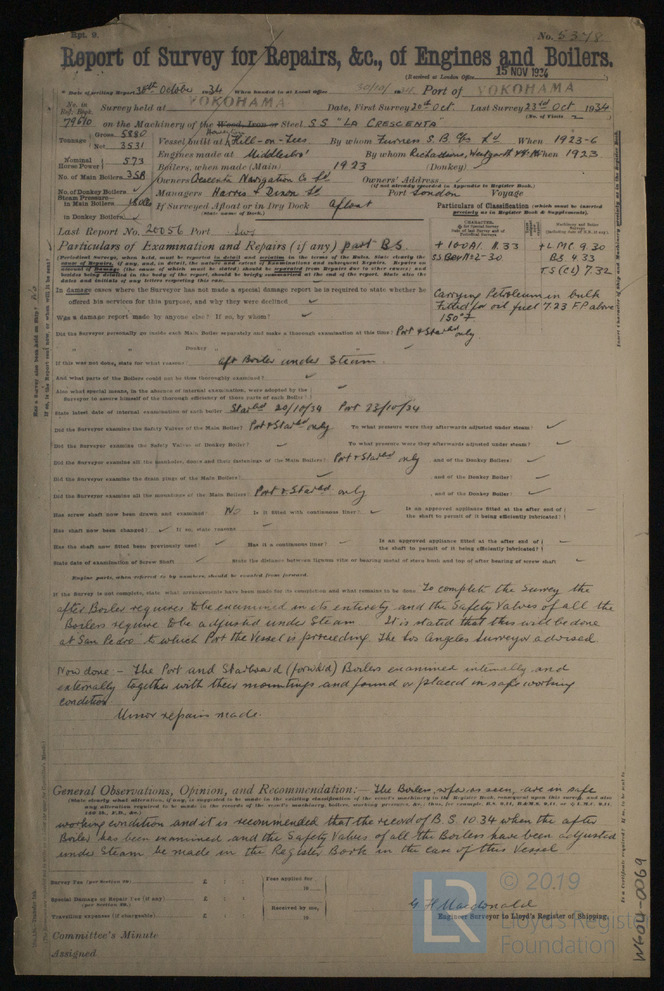 Rpt. 9.
No. 5378
Report of Survey for Repairs, &c., of Engines and Boilers.
(Received at London Office 15 NOV 1934
Date of writing Report 30th October 1934 When handed in at Local Office 30/10/34 Port of YOKOHAMA
No. in Reg. Book. Survey held at YOKOHAMA Date, First Survey 20th Oct Last Survey 23rd Oct 1934
(No. of Visits 2
79610 on the Machinery of the Wood, Iron or Steel S.S "LA CRESCENTA"
Tonnage Gross 5880 Net 3531 Vessel built at Hill-on-Tees. By whom Furness S.B. Co Ld When 1923-6
Engines made at Middlesbro' By whom Richardsons, Westgarth & Co When 1923
Nominal Horse Power 573 Boilers, when made (Main) 1923 (Donkey) ✓
No. of Main Boilers 3SB Owners Crescenta Navigation Co Ld Owners' Address
(if not already recorded in Appendix to Register Book.)
No. of Donkey Boilers ✓ Managers Harris & Dixon Ld Port London Voyage
Steam Pressure in Main Boilers If Surveyed Afloat or in Dry Dock afloat
(State name of Dock.)
in Donkey Boilers ✓
Particulars of Classification (which must be inserted precisely as in Register Book & Supplements).
Last Report No. 20056 Port
Particulars of Examination and Repairs (if any) part B.S.
+100A1. 8.33
+LMC 9.30
B.S. 4.33
TS(CL) 7.32
Carrying Petroleum in bulk
Fitted for oil fuel 7.23 F.P. above
150°F
In damage cases where the Surveyor has not made a special damage report he is required to state whether he
offered his services for this purpose, and why they were declined ✓
Was a damage report made by anyone else? If so, by whom? ✓
Did the Surveyor personally go inside each Main Boiler separately and make a thorough examination at this time? Port & Starbd only
" " Donkey " " "
If this was not done, state for what reason? aft Boiler under Steam.
And what parts of the Boilers could not be thus thoroughly examined? ✓
Also what special means, in the absence of internal examination, were adopted by the
Surveyor to assure himself of the thorough efficiency of those parts of each Boiler? ✓
State latest date of internal examination of each boiler Starbd 20/10/34 Port 23/10/34
Did the Surveyor examine the Safety Valves of the Main Boiler? Port & Starbd only To what pressure were they afterwards adjusted under steam? ✓
Did the Surveyor examine the Safety Valves of Donkey Boiler? ✓ To what pressure were they afterwards adjusted under steam? ✓
Did the Surveyor examine all the manholes, doors and their fastenings of the Main Boilers? Port & Starbd only and of the Donkey Boiler? ✓
Did the Surveyor examine the drain plugs of the Main Boilers? ✓ , and of the Donkey Boiler? ✓
Did the Surveyor examine all the mountings of the Main Boilers? Port & Starbd only , and of the Donkey Boiler? ✓
Has screw shaft now been drawn and examined? No Is it fitted with continuous liner? ✓ Is an approved appliance fitted at the after end of the shaft to permit of it being efficiently lubricated? –
Has shaft now been changed? ✓ If so, state reasons ✓
Has the shaft now fitted been previously used? ✓ Has it a continuous liner? ✓ Is an approved appliance fitted at the after end of the shaft to permit of it being efficiently lubricated? –
State date of examination of Screw Shaft ✓ State the distance between lignum vitæ or bearing metal of stern bush and top of after bearing of screw shaft ✓
Engine parts, when referred to by numbers should be counted from forward.
If the Survey is not complete, state what arrangements have been made for its completion and what remains to be done To complete the Survey the
after Boiler requires to be examined in its entirety and the Safety Valves of all the
Boilers require to be adjusted under Steam It is stated that this will be done
at San Pedro to which Port the Vessel is proceeding The Los Angeles Surveyor advised
Now done:- The Port and Starboard (forwrd) Boilers examined internally and
externally together with their mountings and found or placed in safe working
condition
Minor repairs made.
General Observations, Opinion, and Recommendation:— The Boilers, so far as seen, are in safe
working condition and it is recommended that the record of B.S. 10.34 when the after
Boiler has been examined and the Safety Valves of all the Boilers have been adjusted
under Steam be made in the Register Book in the case of this Vessel
Survey Fee (per Section 29) £ : : Fees applied for
Special Damage or Repair Fee (if any) (per Section 29.) £ : : 19
Travelling expenses (if chargeable) £ : : Received by me, 19
G H Macdonald
Engineer Surveyor to Lloyd's Register of Shipping.
Committee's Minute
Assigned
© 2019
LR
Lloyd's Register
Foundation
W604-0069